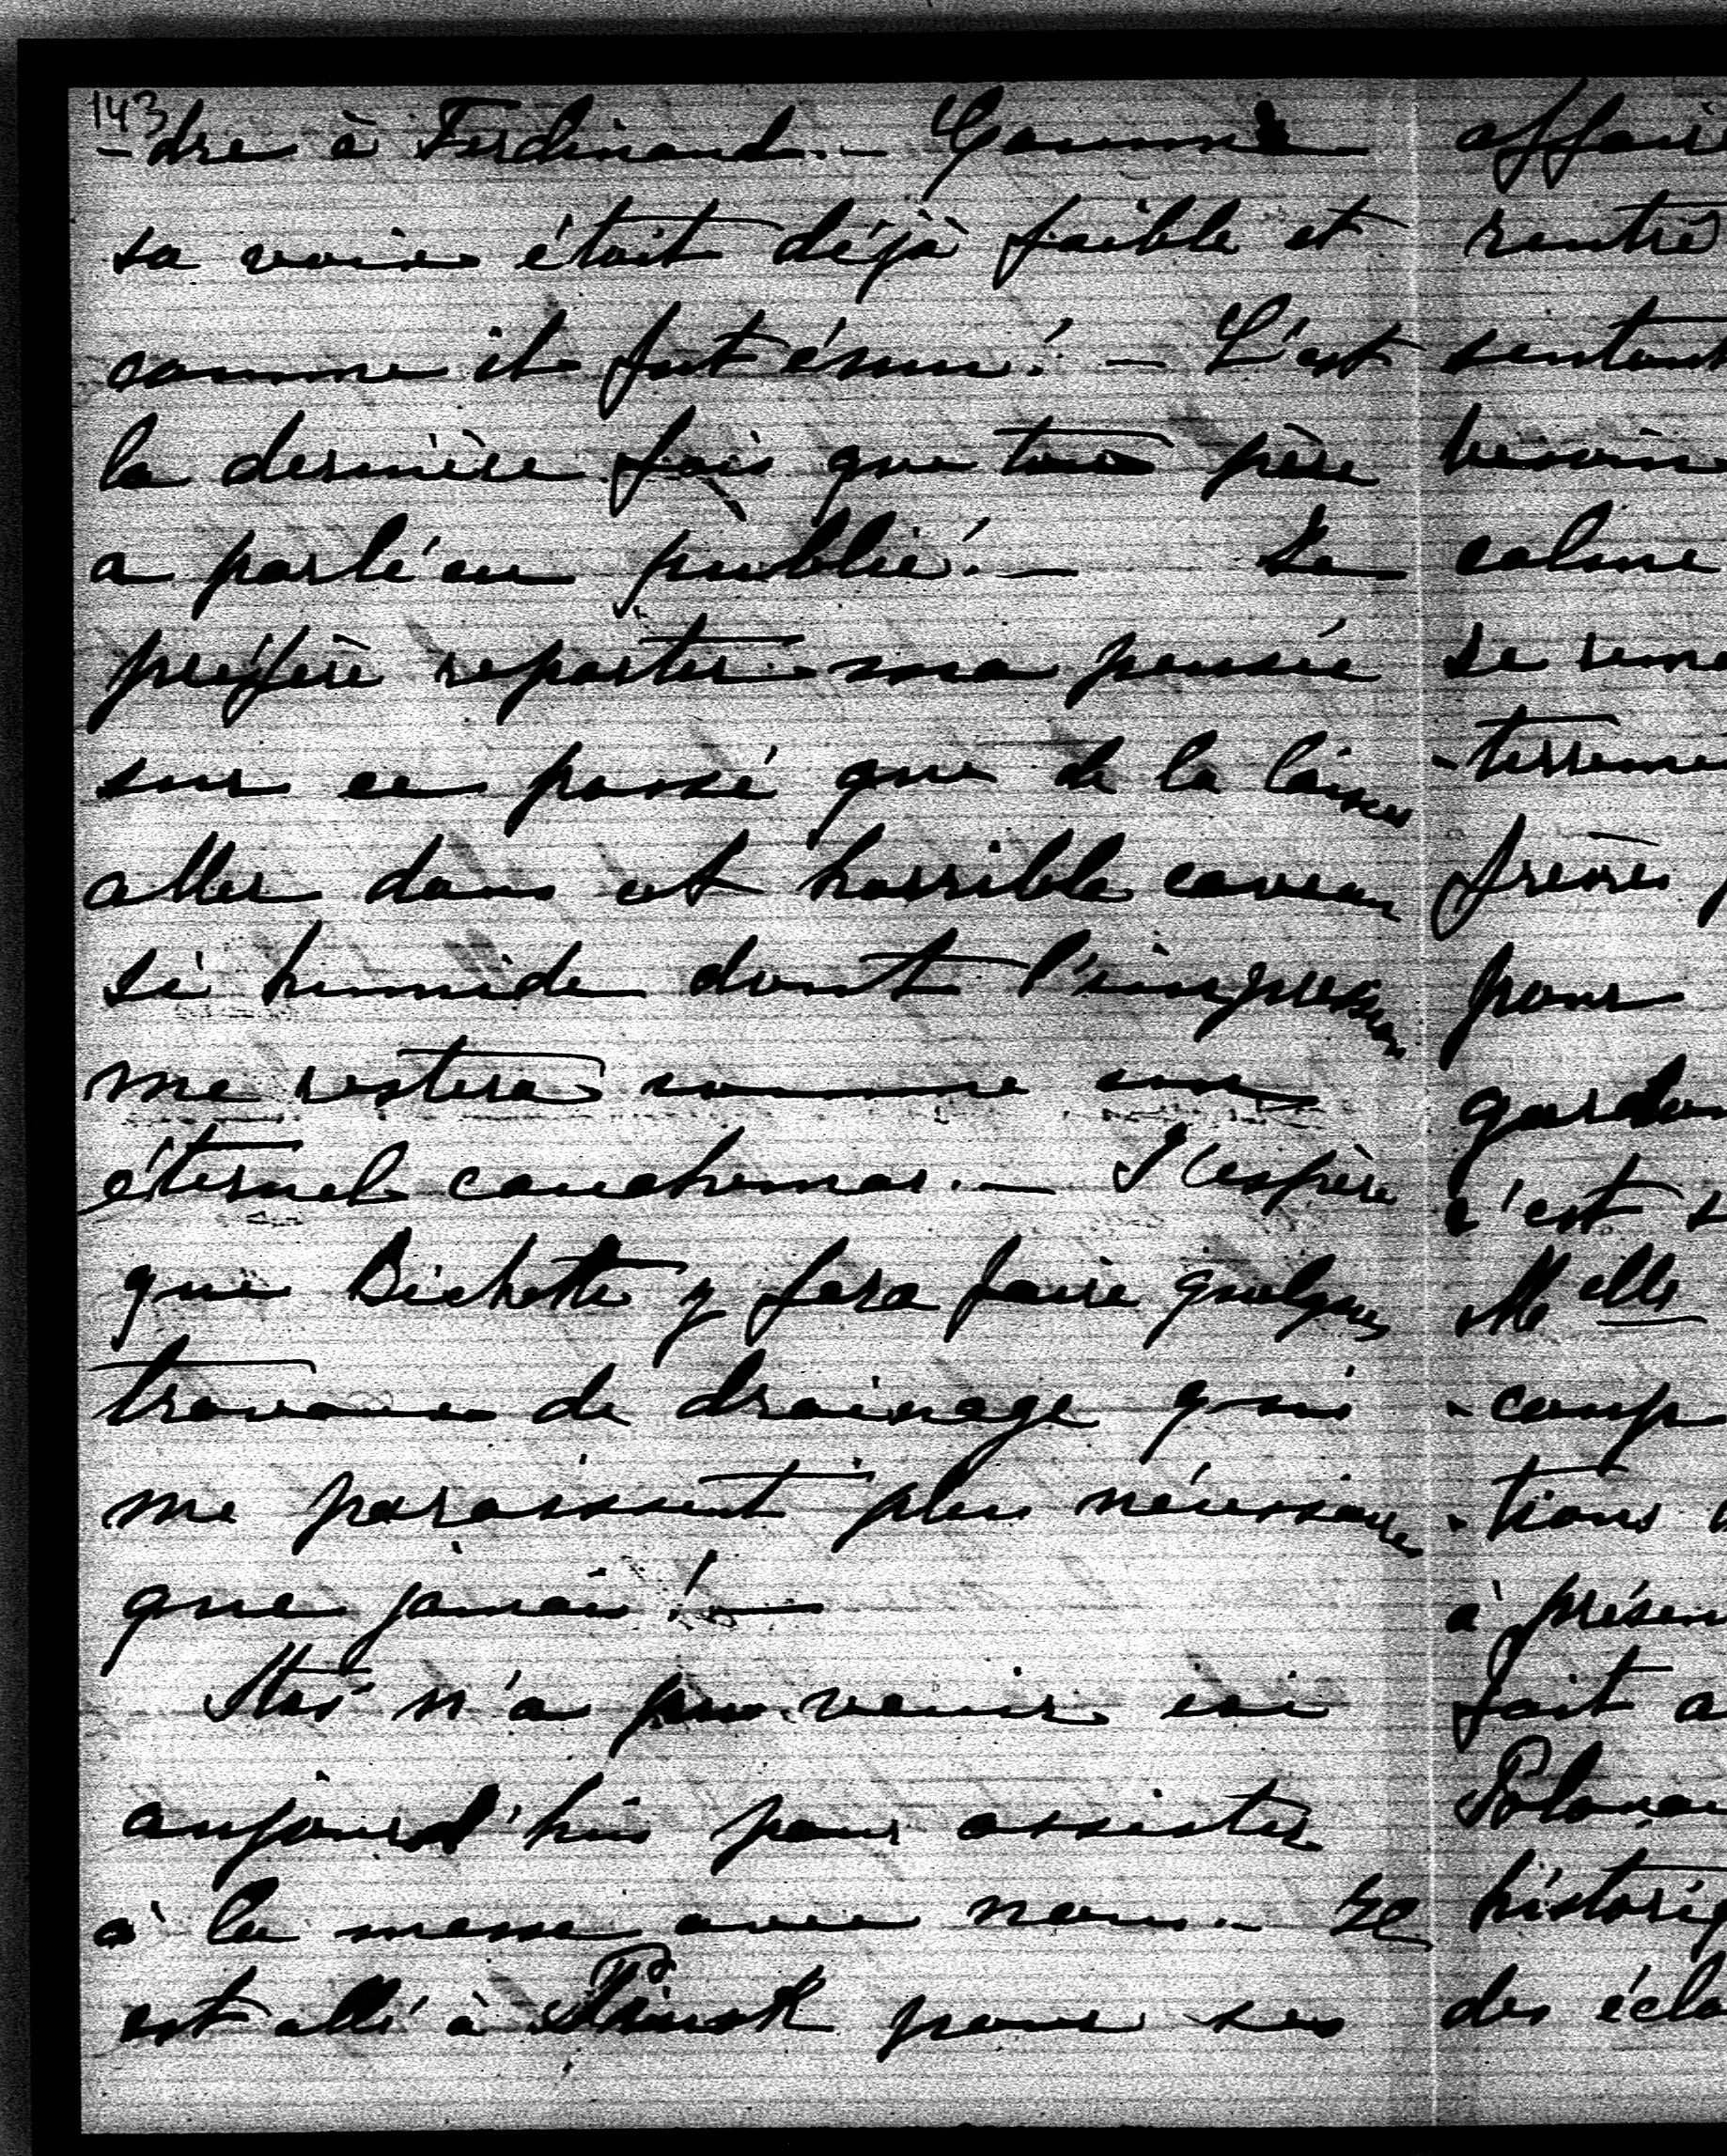 143
-dre à Ferdinand. - Comme
sa voix était déjà faible et
comme il fut ému! - C'est
la dernière fois que ton père
a parlé en public! - Je
préfère reporter ma pensée
sur ce passé que de la laisser
aller dans cet horrible caveau
si humide dont l'impression
me restera comme un
éternel cauchemar. - J'espère
que Bichette y fera faire quelques
travaux de drainage qui
me paraissent plus nécessaires
que jamais! -
n'a pu venir ici
aujourd'hui pour assister
à la messe avec nous. - Il
est allé à Pinsk pour ses
affair
rentre
sentant
besoin
calme
se
-terreme
frères
pour
gardon
c'est
Melle
-comp
-tions
à présen
fait a
Polona
historiq
des écla